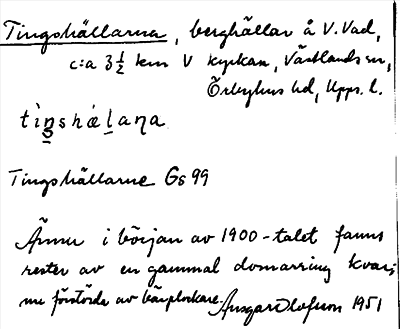 Tingshällarna, berghällar å V. Vad,
c:a 3 ½ km V kyrkan, Västlands sn,
Örbyhus hd, Upps. l.
tìŋshäḷaṇa
Tingshällarne Gs 99
Ännu i början av 1900-talet fanns
rester av en gammal domarring kvar;
nu förstörda av bärplockare. Ansgar Olofsson 1951